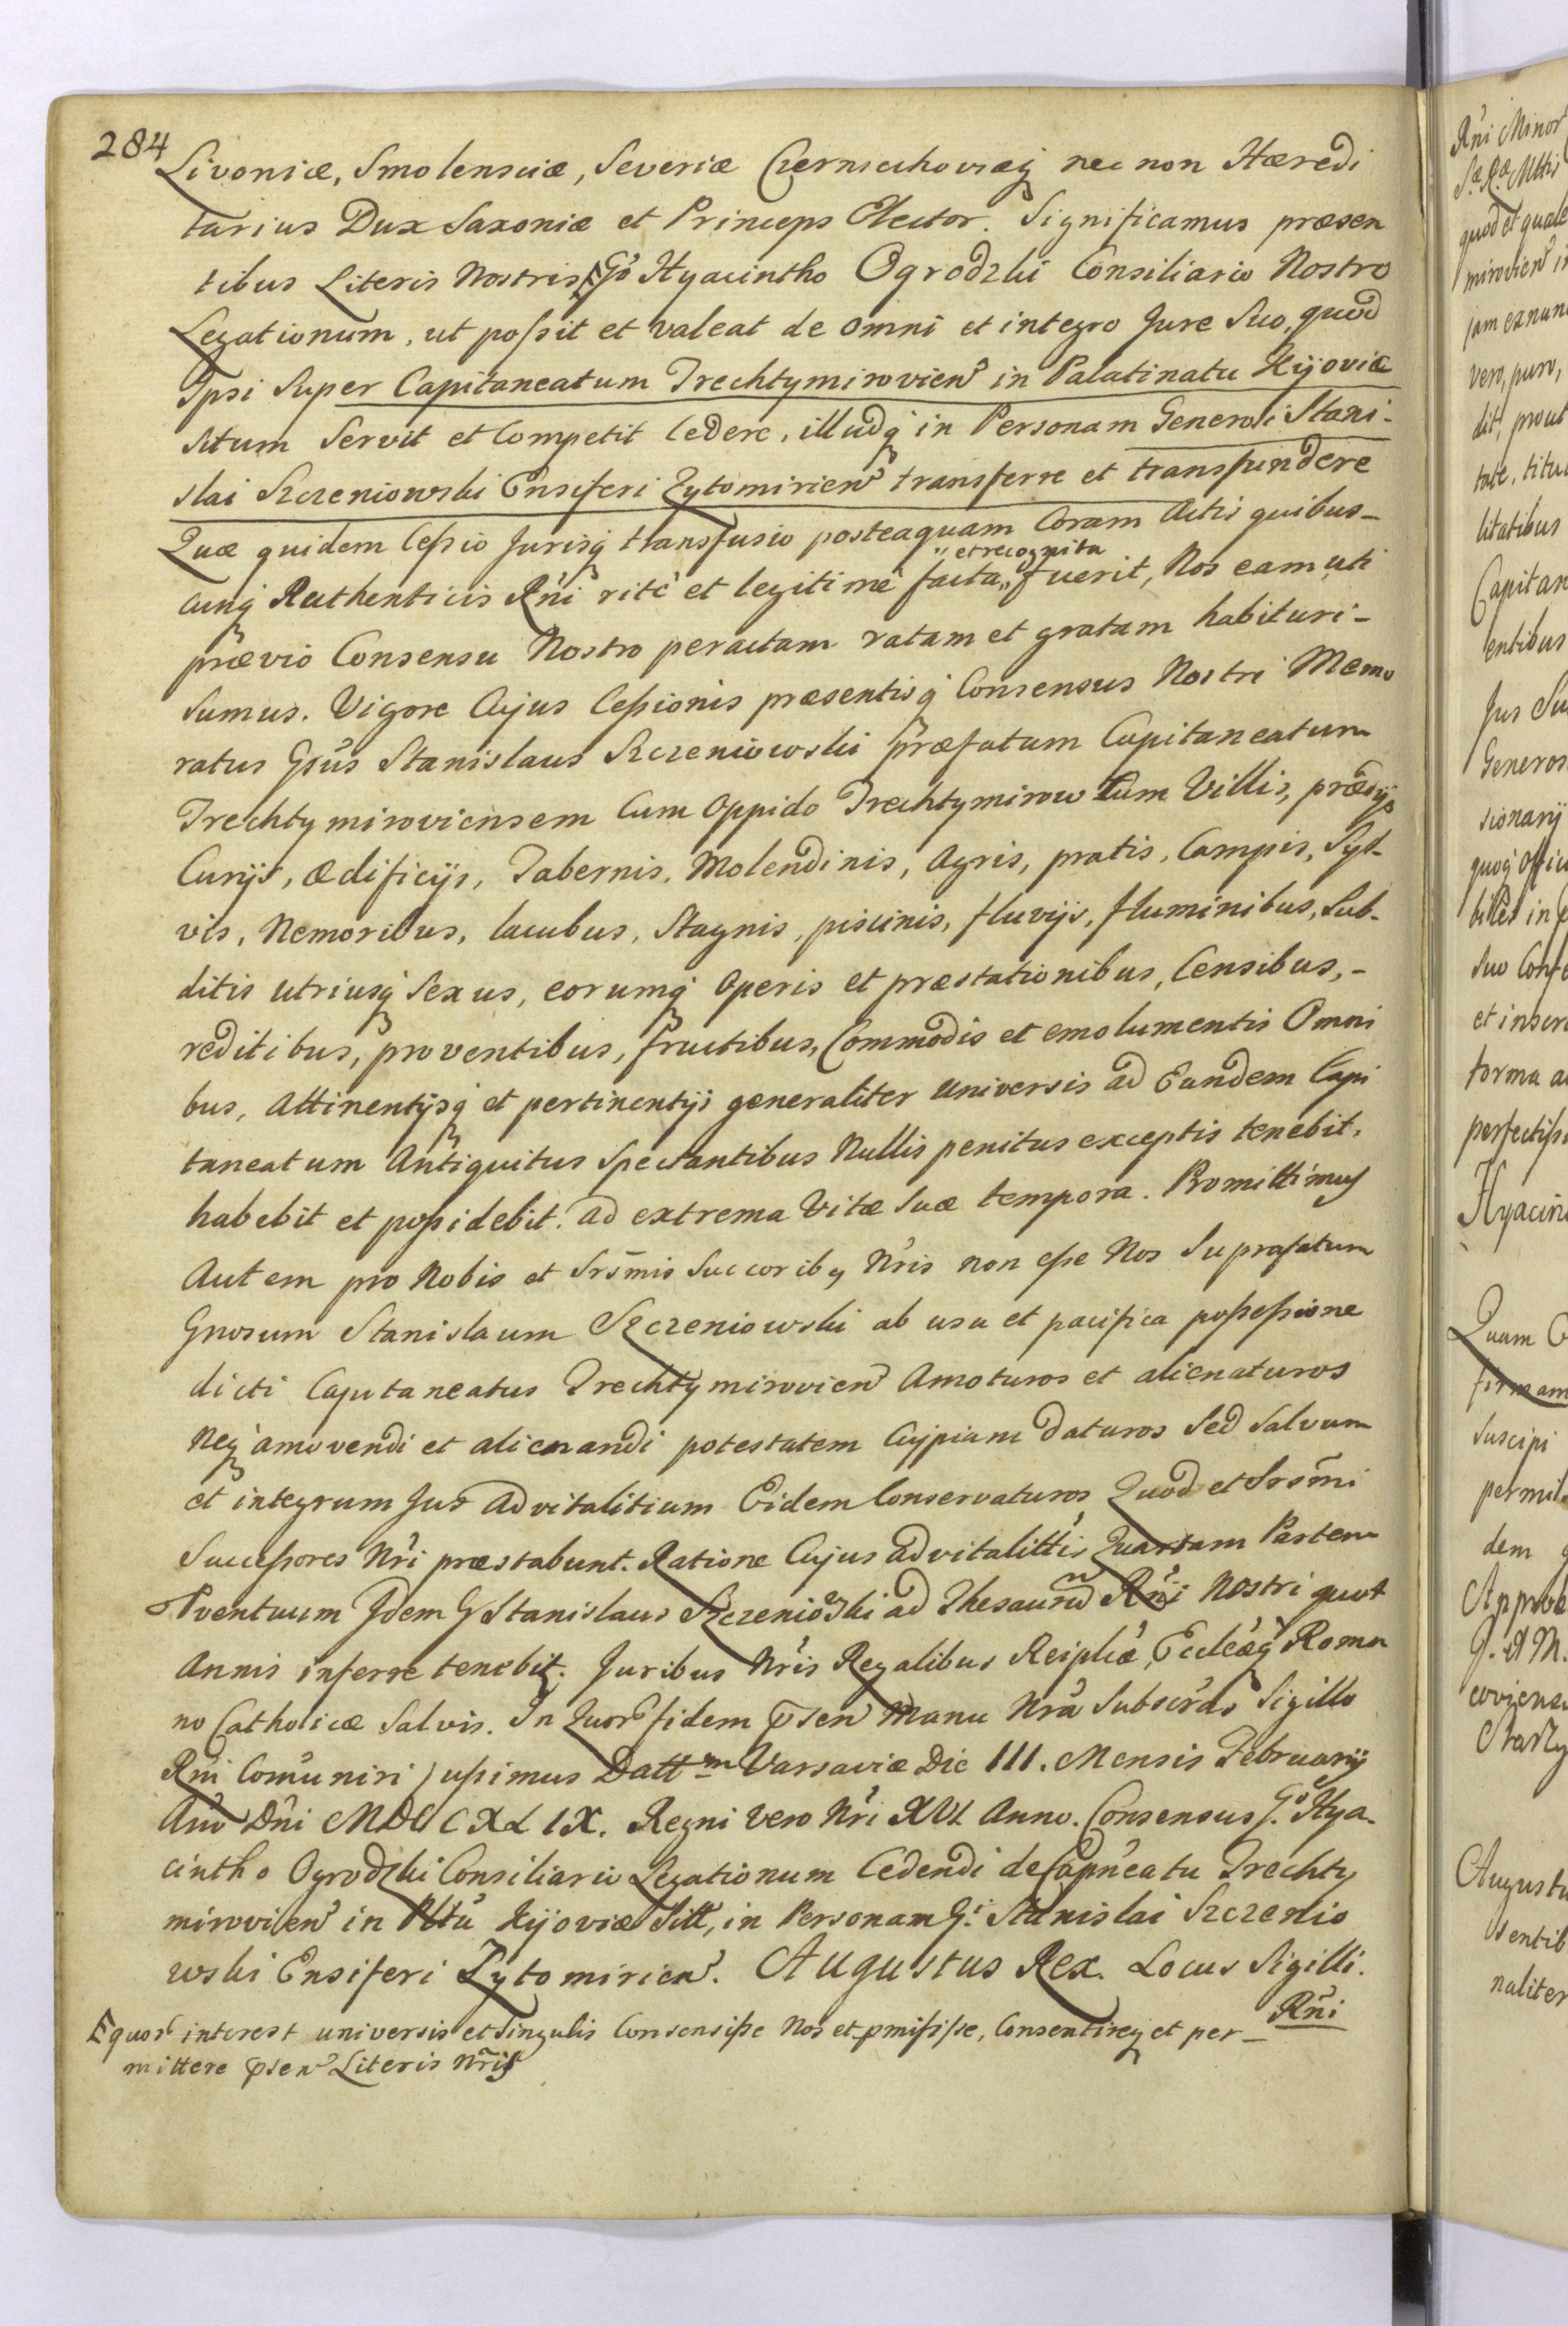 284
Livoniæ, Smolensciæ, Severiæ Czerniechoviæq nec non Hæredi
tarius Dux Saxoniæ et Princeps Elector. Significamus præsen
tibus Literis Nostris Gso Hyacintho Ogrodzki Consiliario Nostro
Legationum, ut possit et valeat de omni et integro Jure Suo, quod
Ipsi Super Capitaneatum Trechtymirovien in Palatinatu Kijoviæ
situm Servit et Competit Cedere, illudq in Personam Generosi Stani-
slai Szczeniowski Ensiferi Zytomirien transferre et transfundere
Quæ quidem Cessio Jurisq transfusio posteaquam Coram Actis quibus-
cunq Authenticis Rñi ritè et legitimè facta "et recognita" fuerit, Nos eam uti
prævio Consensu Nostro peractam ratam et gratam habituri-
sumus. Vigore Cujus Cessionis præsentisq Consensus Nostri Memo
ratus Gsus Stanislaus Szczeniowski præfatum Capitaneatum
Trechtymiroviensem Cum Oppido Trechtymirow Cum Villis, prædijs
Curijs, ædificijs, Tabernis, Molendinis, Agris, pratis, Campis, Syl-
vis, Nemoribus, lacubus, Stagnis, piscinis, fluvijs, fluminibus, Sub-
ditis utriusq Sexus, eorumq Operis et præstationibus, Censibus,-
reditibus, proventibus, fructibus, Commodis et emolumentis Omni
bus, Attinentijsq et pertinentijs generaliter Universis ad Eundem Capi
taneatum Antiquitus Spectantibus Nullis penitus exceptis tenebit,
habebit et possidebit. ad extrema Vitæ Suæ tempora. Promittimus
Autem pro Nobis et Srsmis Succoribq Nris non esse Nos Suprafatum
Gnosum Stanislaum Szczeniowski ab usu et pacifica possessione
dicti Capitaneatus Trechtymirovien Amoturos et alienaturos
Neq amovendi et alienandi potestatem Cuipiam daturos Sed Salvum
et integrum Jus Advitalitium Eidem Conservaturos Quod et Srsmi
Successores Nri præstabunt. Ratione Cujus advitalittis Quartam Partem
Pventuum Idem G Stanislaus Szczeniowski ad Thesaurũ Rñi Nostri quot
Annis inferre tenebit. Juribus Nris Regalibus Reiplicæ, Ecclæq Roma
no Catholicæ Salvis. In Quor fidem psen Manu Nra Subscras Sigillo
Rñi Comuniri jussimus Datt m Varsaviæ Die III. Mensis Februarij
Ano Dni MDCCXLIX. Regni Vero Nri XVI Anno. Consensus Gso Hya-
cintho Ogrodzki Consiliario Legationum Cedendi de Capneatu Trechty
mirovien in Pltu Kijoviæ Sitt, in Personam Gsi Stanislai Szczenio
wski Ensiferi Zytomirien. Augustus Rex. Locus Sigilli.
Rñi
quor interest universis et Singulis Consensisse Nos et pmisisse, Consentireq et per-
mittere psen Literis Nris